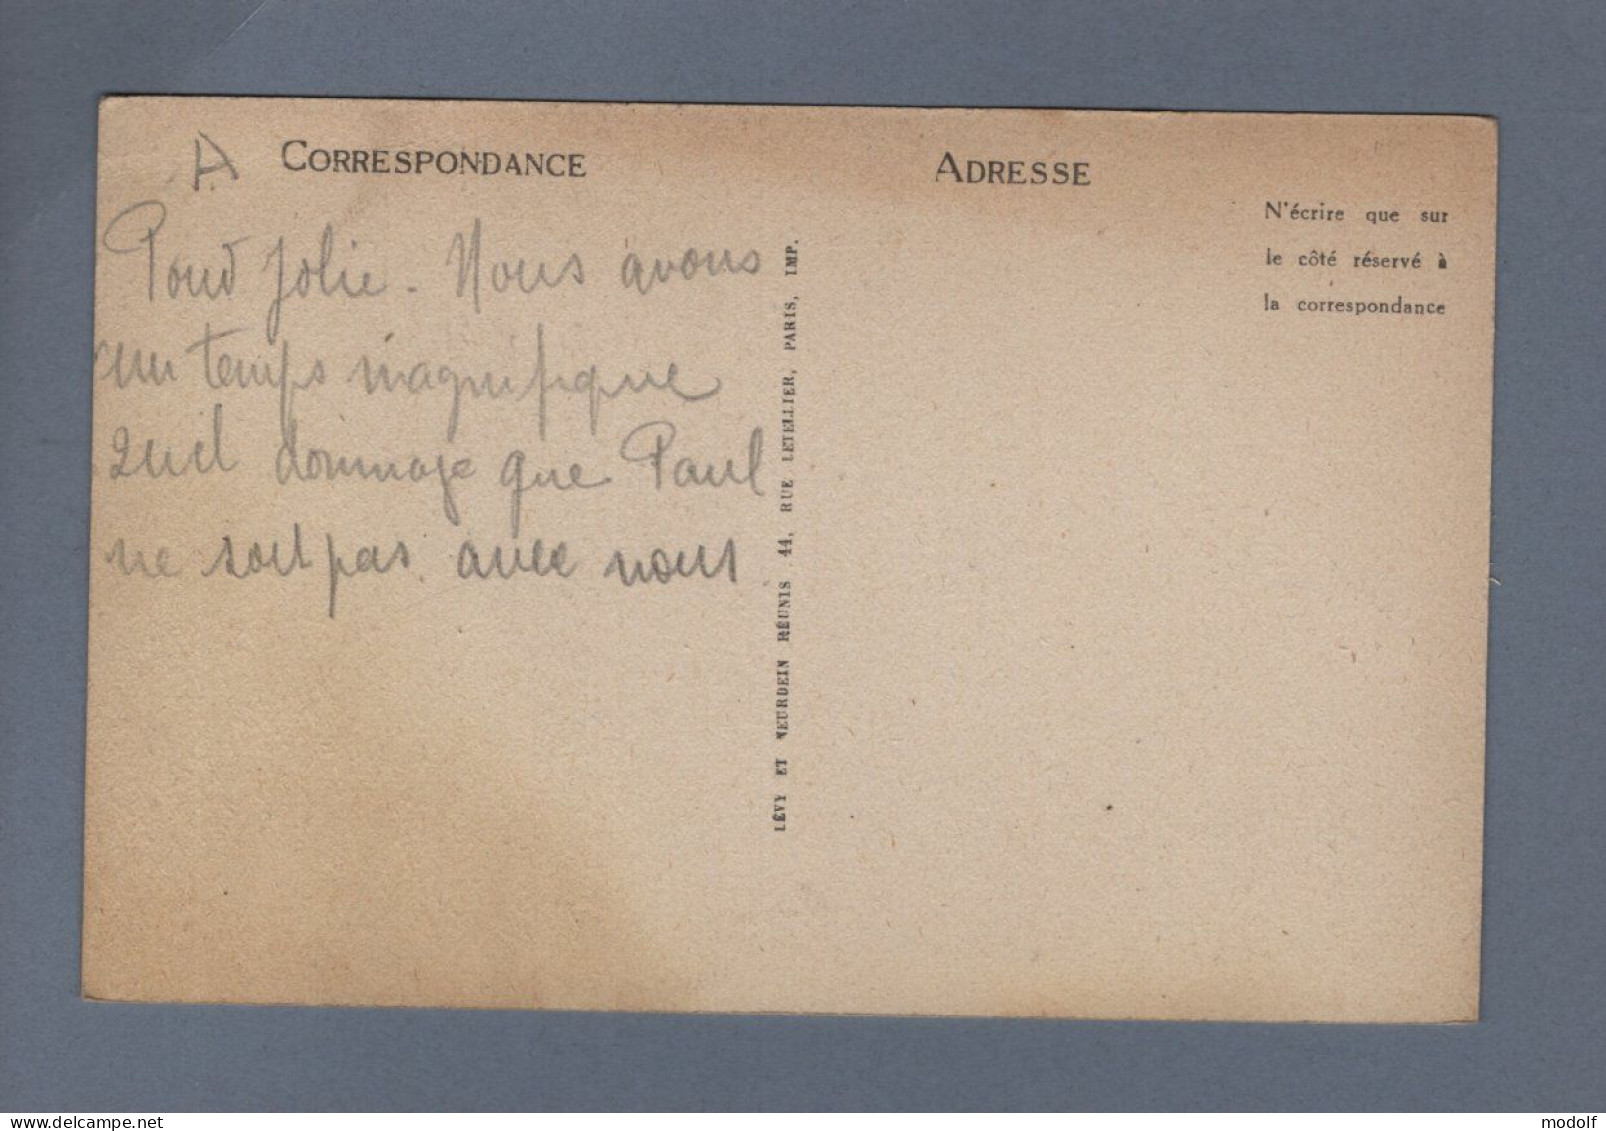 A CORRESPONDANCE
Poud jolie. Nous avons
un temps magnifique
Quel dommage que Paul
ne soit pas avec nous
LÉVY ET NEURDEIN RÉUNIS 44, RUE LETELLIER, PARIS, IMP.
ADRESSE
N'écrire que sur
le côté réservé à
la correspondance
modolf